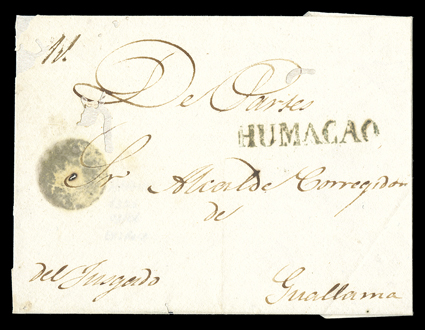 De Partes
HUMACAO
Sr Alcalde Corregidor
de
del Juzgado
Guallama